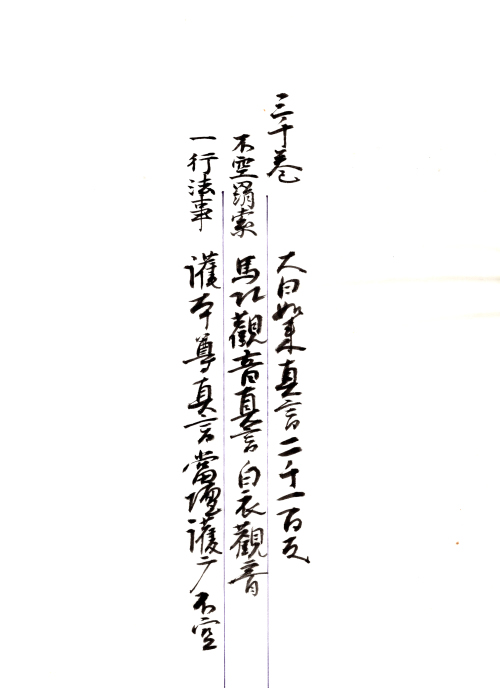 三千巻 大日如来真言二千一百反
不空羂索 馬頭觀音真言白衣觀音
一行法事 護本尊真言當壇護广不空